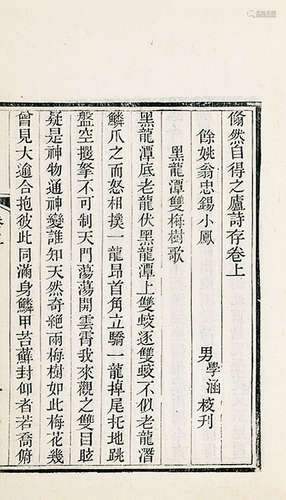 翛然自得之廬詩存卷上
餘姚翁忠錫小鳳
男學涵校刊
黑龍潭雙梅樹歌
黑龍潭底老龍伏黑龍潭上雙蛟逐雙蛟不似老龍潛
鱗爪之而怒相撲一龍昂首角立驕一龍掉尾拓地跳
盤空攫拏不可制天門蕩蕩開雲霄我來觀之雙目眩
疑是神物通神變誰知天然奇絕兩梅樹如此梅花幾
曾見大逾合抱彼此同滿身鱗甲苔蘚封仰者若喬俯